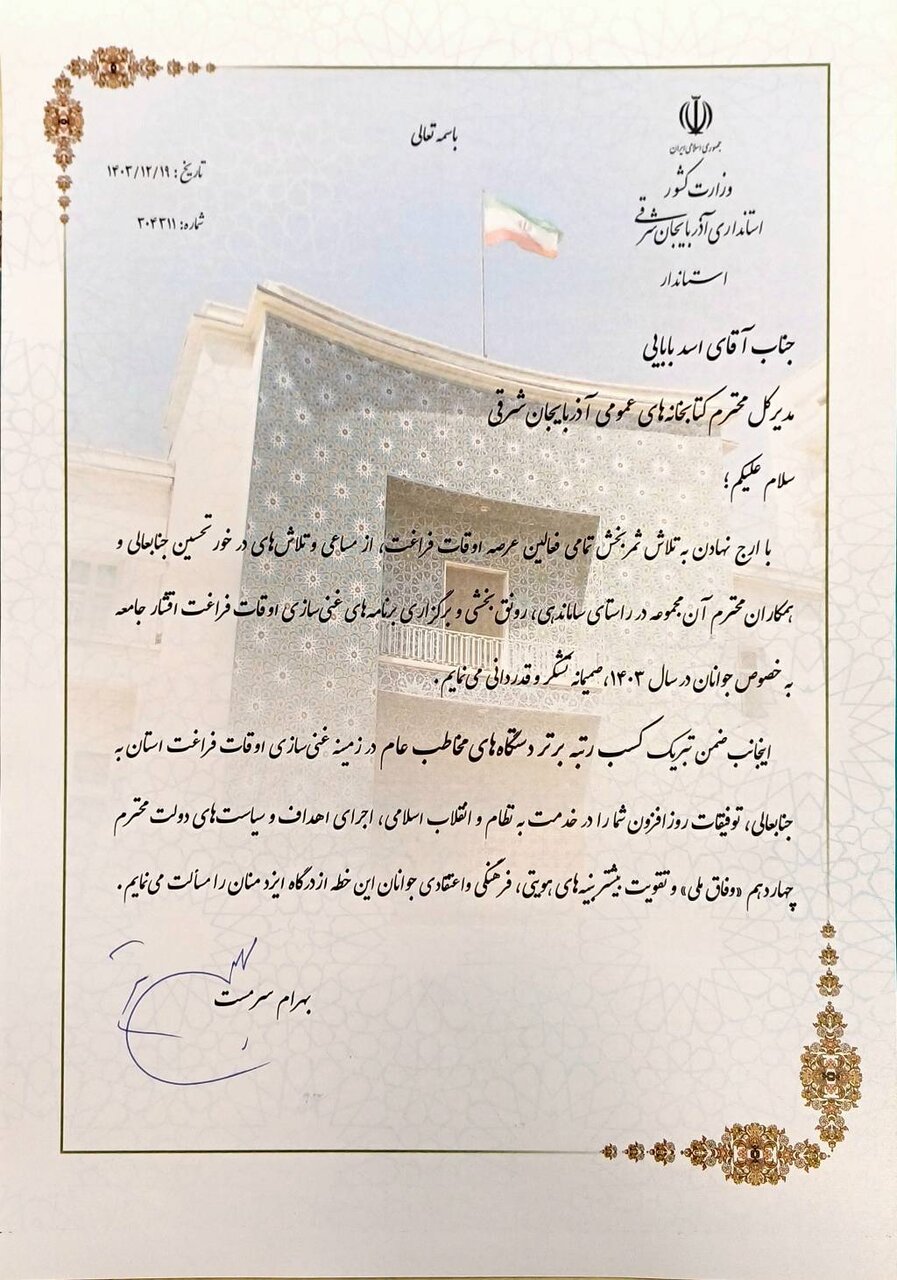 باسمه تعالی
جمهوری اسلامی ایران
وزارت کشور
استانداری آذربایجان شرقی
استاندار
تاریخ: ۱۴۰۳/۱۲/۱۹
شماره: ۳۰۴۳۱۱
جناب آقای اسد بابایی
مدیرکل محترم کتابخانه‌های عمومی آذربایجان شرقی
سلام علیکم؛
با ارج نهادن به تلاش ثمربخش تمامی فعالین عرصه اوقات فراغت، از مساعی و تلاش‌های در خور تحسین جنابعالی و
همکاران محترم آن مجموعه در راستای ساماندهی، رونق بخشی و برگزاری برنامه‌های غنی‌سازی اوقات فراغت اقشار جامعه
به خصوص جوانان در سال ۱۴۰۳، صمیمانه تشکر و قدردانی می‌نمایم.
اینجانب ضمن تبریک کسب رتبه برتر دستگاه‌های مخاطب عام در زمینه غنی‌سازی اوقات فراغت استان به
جنابعالی، توفیقات روزافزون شما را در خدمت به نظام و انقلاب اسلامی، اجرای اهداف و سیاست‌های دولت محترم
چهاردهم «وفاق ملی» و تقویت بیشتر بنیه‌های هویتی، فرهنگی واعتقادی جوانان این خطه از درگاه ایزد منان را مسألت می‌نمایم.
بهرام سرمست